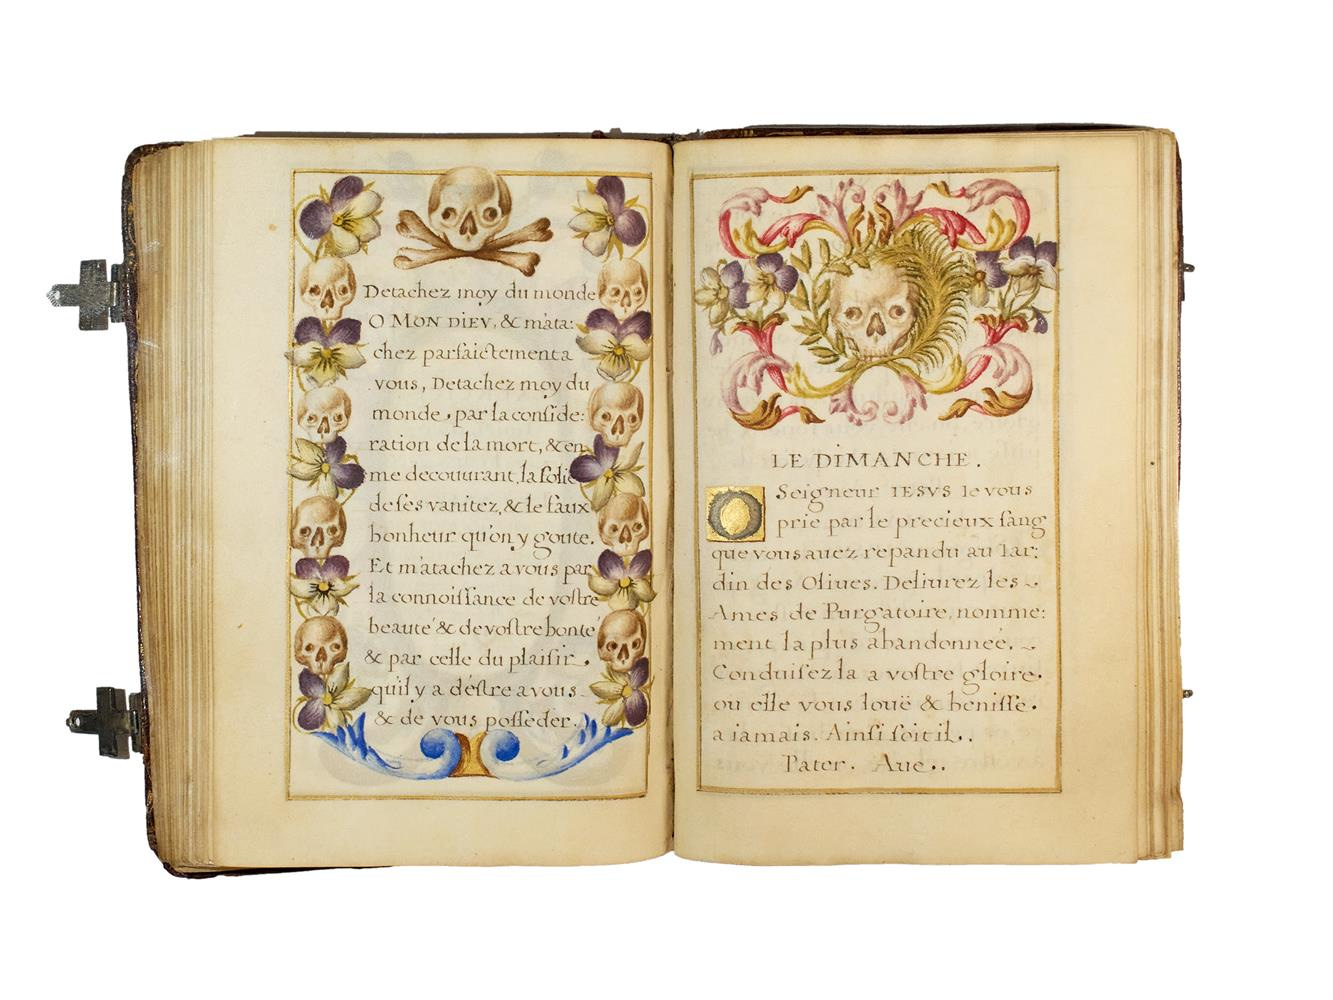 Detachez moy du monde
O MON DIEV, & m'ata:
chez parfaictement a
vous, Detachez moy du
monde, par la conside:
ration de la mort, & en
me decouurant, la folie
de ses vanitez, & le faux
bonheur qu'on y goute.
Et m'atachez a vous par
la connoissance de vostre
beauté & de vostre bonté
& par celle du plaisir.
qu'il y a d'estre a vous
& de vous posseder.
LE DIMANCHE.
O Seigneur IESVS Ie vous
prie par le precieux sang
que vous auez repandu au Iar:
din des Oliues. Deliurez les
Ames de Purgatoire, nomme:
ment la plus abandonnée.
Conduisez la a vostre gloire.
ou elle vous louë & benisse.
a iamais. Ainsi soit il..
Pater. Aue..